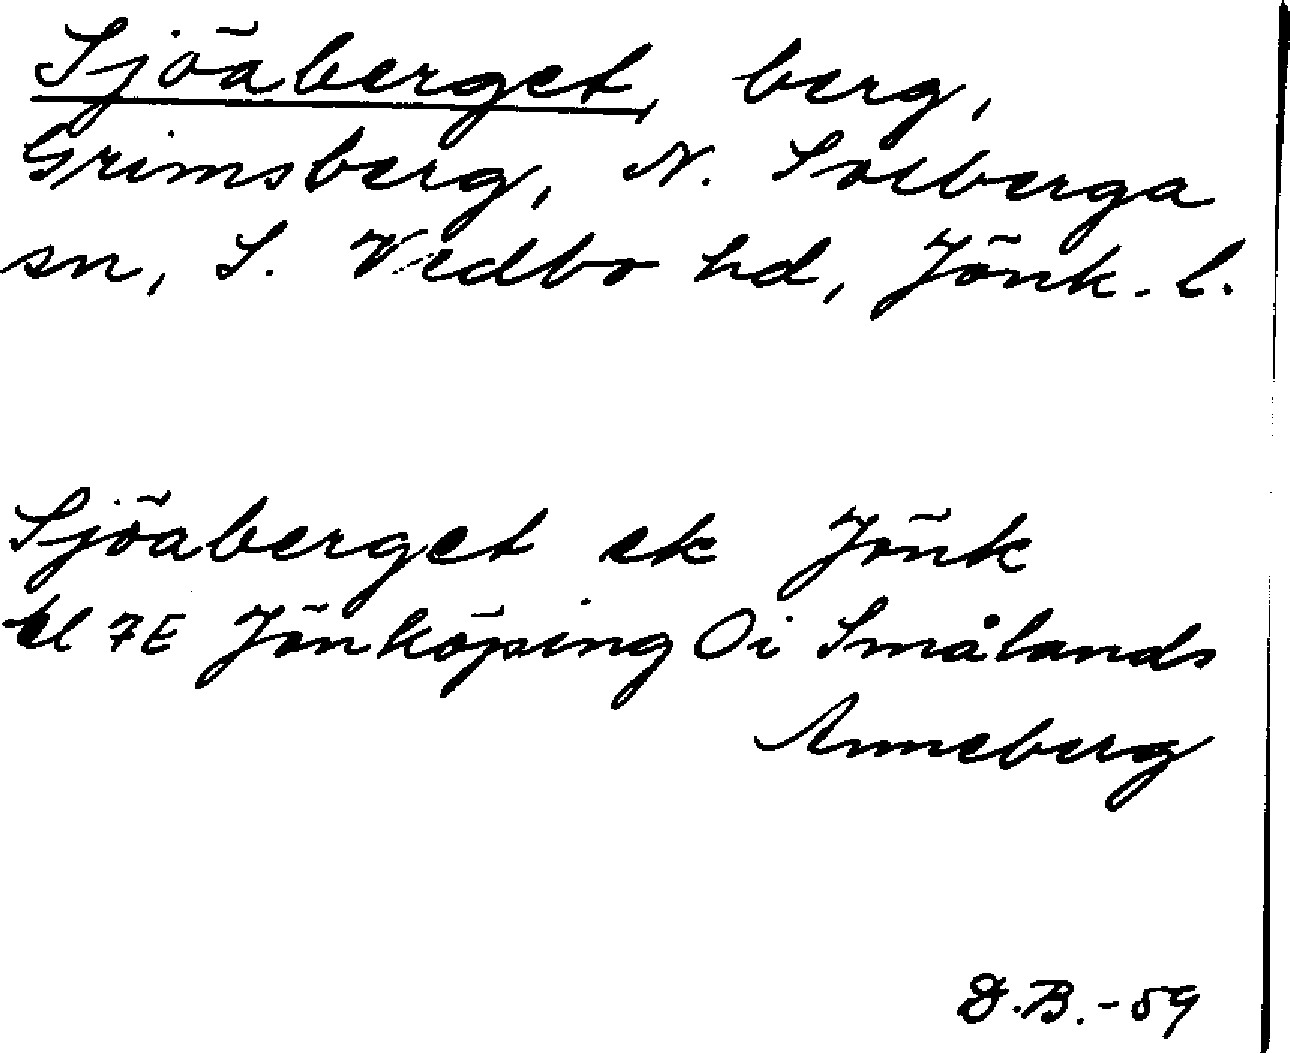 Sjöaberget, berg,
Grimsberg, N. Solberga
sn, S. Vedbo hd, Jönk. l.
Sjöaberget ek Jönk
bl 7E Jönköping Oi Smålands
Anneberg
D.B.-59